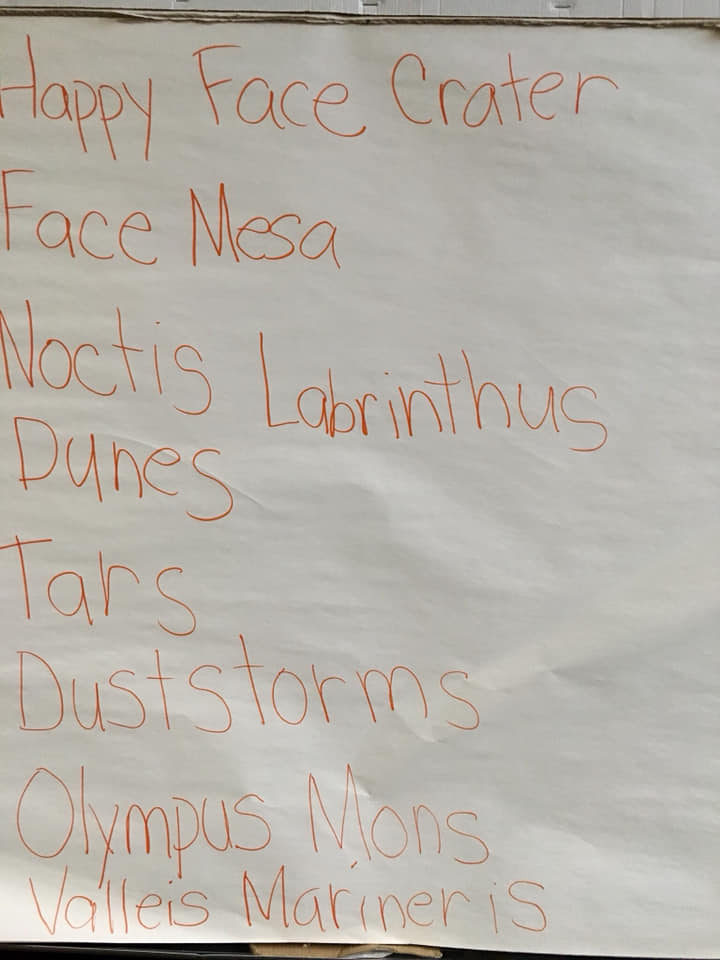 Happy Face Crater
Face Mesa
Noctis Labrinthus
Dunes
Tars
Duststorms
Olympus Mons
Valleis Marineris